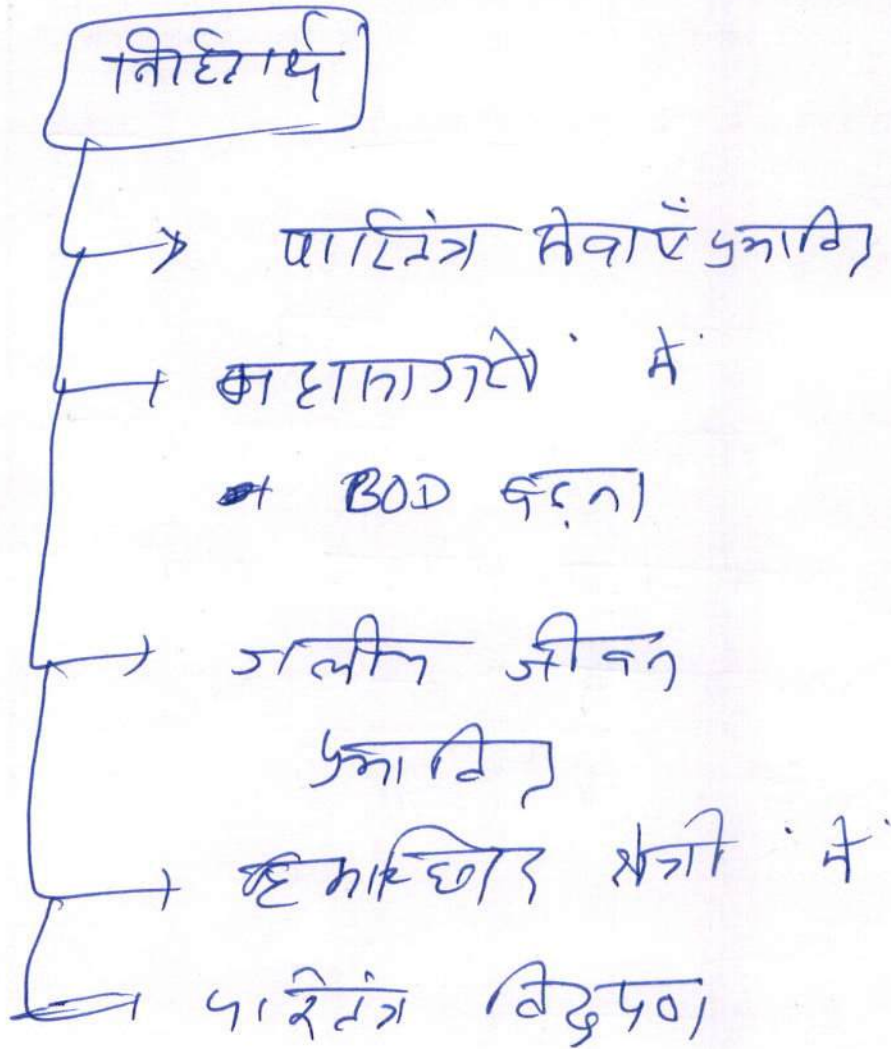 निहितार्थ
→ पारितंत्र सेवाएँ प्रभावित
→ महासागरों में
BOD बढ़ना
→ जलीय जीवन
प्रभावित
→ हिमाच्छादित क्षेत्रों में
→ पारितंत्र विदूपण